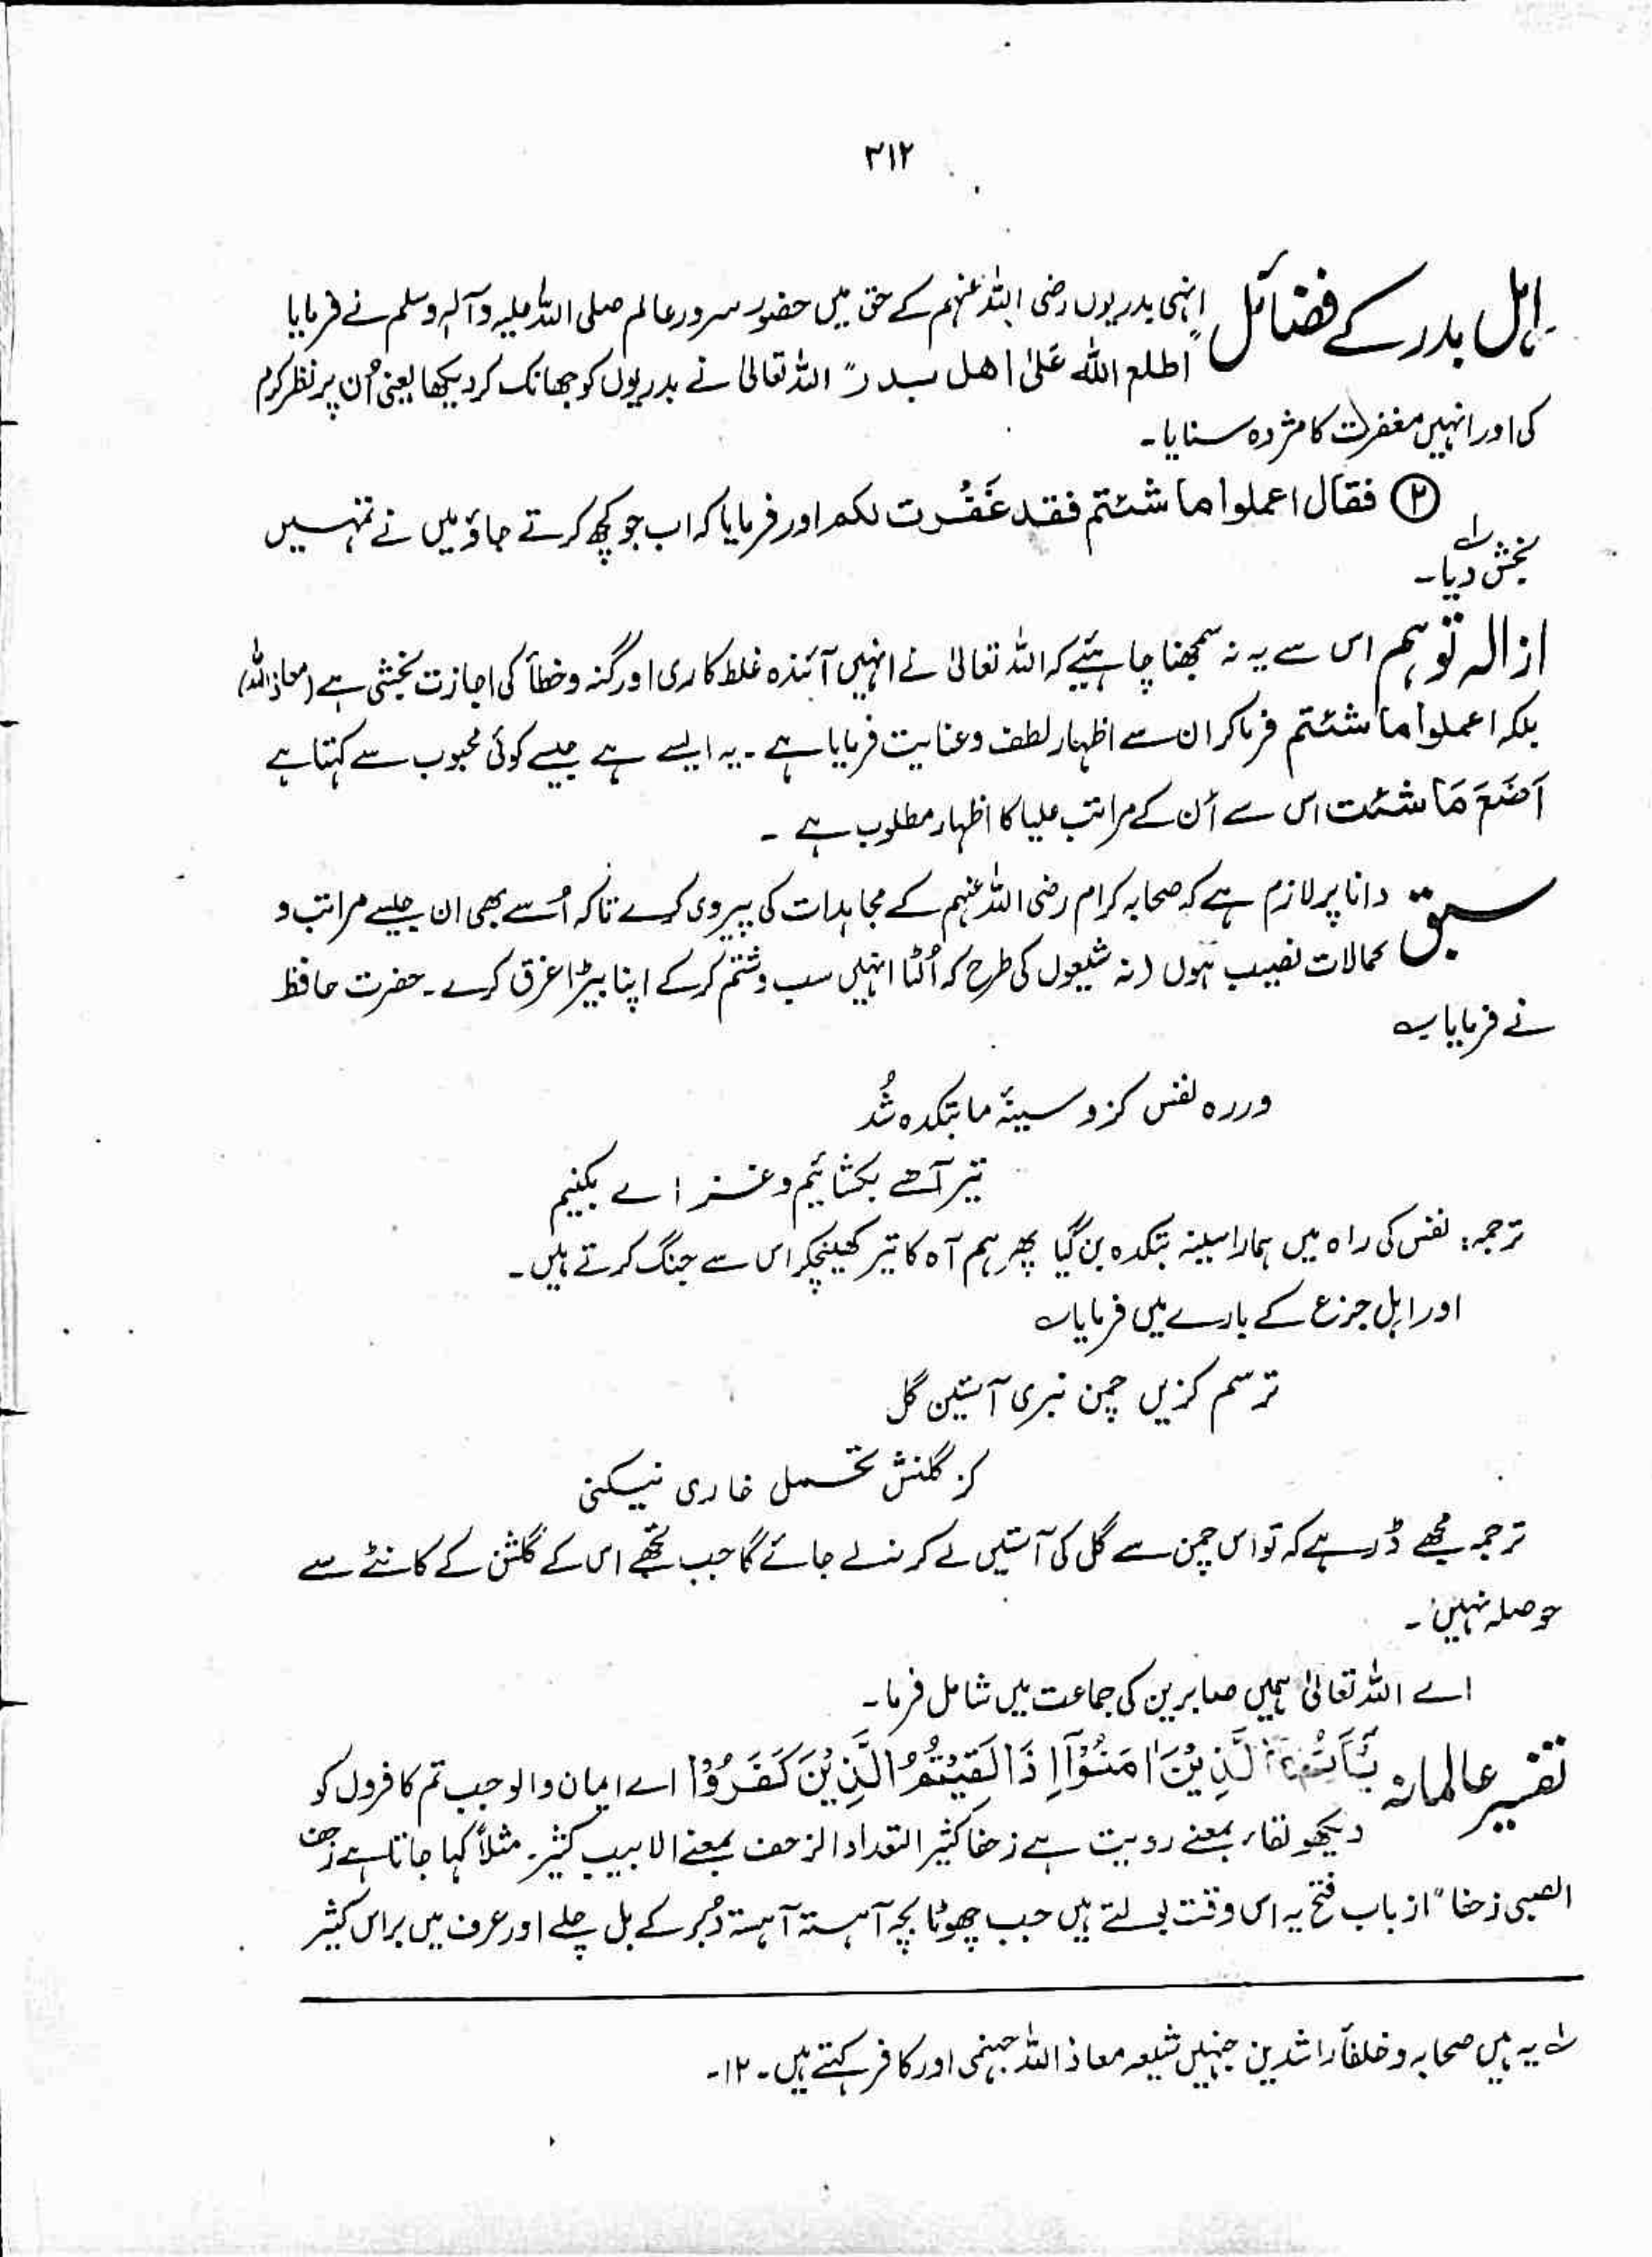 ۳۱۲
اہل بدر کے فضائل انہی بدریوں رضی اللہ عنہم کے حق میں حضور سرور عالم صلی اللہ علیہ وآلہ وسلم نے فرمایا
"اطلع اللہ علیٰ اھل بدر" اللہ تعالیٰ نے بدریوں کو جھانک کر دیکھا یعنی اُن پر نظر کرم
کی اور انہیں مغفرت کا مژدہ سنایا۔
② فقال اعملوا ما شئتم فقد غَفَرت لکم اور فرمایا کہ اب جو کچھ کرتے جاؤ میں نے تمہیں
بخش دیا۔ لہ
ازالہ توہم اس سے یہ نہ سمجھنا چاہئیے کہ اللہ تعالیٰ نے انہیں آئندہ غلط کاری اور گنہ و خطأ کی اجازت بخشی ہے (معاذ اللہ)
بلکہ اعملوا ما شئتم فرما کر ان سے اظہار لطف و عنایت فرمایا ہے ۔ یہ ایسے ہے جیسے کوئی محبوب سے کہتا ہے
اَضَعَ مَا شئت اس سے اُن کے مراتب علیا کا اظہار مطلوب ہے ۔
سبق دانا پر لازم ہے کہ صحابہ کرام رضی اللہ عنہم کے مجاہدات کی پیروی کرے تاکہ اُسے بھی ان جیسے مراتب و
کمالات نصیب ہوں (نہ شیعوں کی طرح کہ اُلٹا انہیں سب و شتم کر کے اپنا بیڑا غرق کرے ۔ حضرت حافظ
نے فرمایا ؎
وررہ نفس کزو سینۂ ما بتکدہ شُد
تیر آھے بکشائیم و غزاے بکنیم
ترجمہ: نفس کی راہ میں ہمارا سینہ بتکدہ بن گیا پھر ہم آہ کا تیر کھینچکر اس سے جنگ کرتے ہیں ۔
اور اہل جزع کے بارے میں فرمایا ؎
ترسم کزیں چمن نبری آستین گل
کز گلنش تحمل خاری نیکنی
ترجمہ مجھے ڈر ہے کہ تو اس چمن سے گل کی آستیں لے کر نہ لے جائے گا جب تجھے اس کے گلشن کے کانٹے سے
حوصلہ نہیں ۔
اے اللہ تعالیٰ ہمیں صابرین کی جماعت میں شامل فرما ۔
تفسیر عالمانہ یٰٓاَیُّھَا الَّذِیْنَ اٰمَنُوْٓا اِذَا لَقِیْتُمُ الَّذِیْنَ کَفَرُوْا اے ایمان والو جب تم کافروں کو
دیکھو لقاء بمعنے رویت ہے زحفا کثیر التعداد الزحف بمعنے الابیب کثیر۔ مثلاً کہا جاتا ہے زحف
الصبی زحفا" از باب فتح یہ اس وقت بولتے ہیں جب چھوٹا بچہ آہستہ آہستہ دُبر کے بل چلے اور عرف میں ہر اس کثیر
لہ یہ ہیں صحابہ و خلفأ راشدین جنہیں شیعہ معاذ اللہ جہنمی اور کافر کہتے ہیں ۔ ۱۲۔